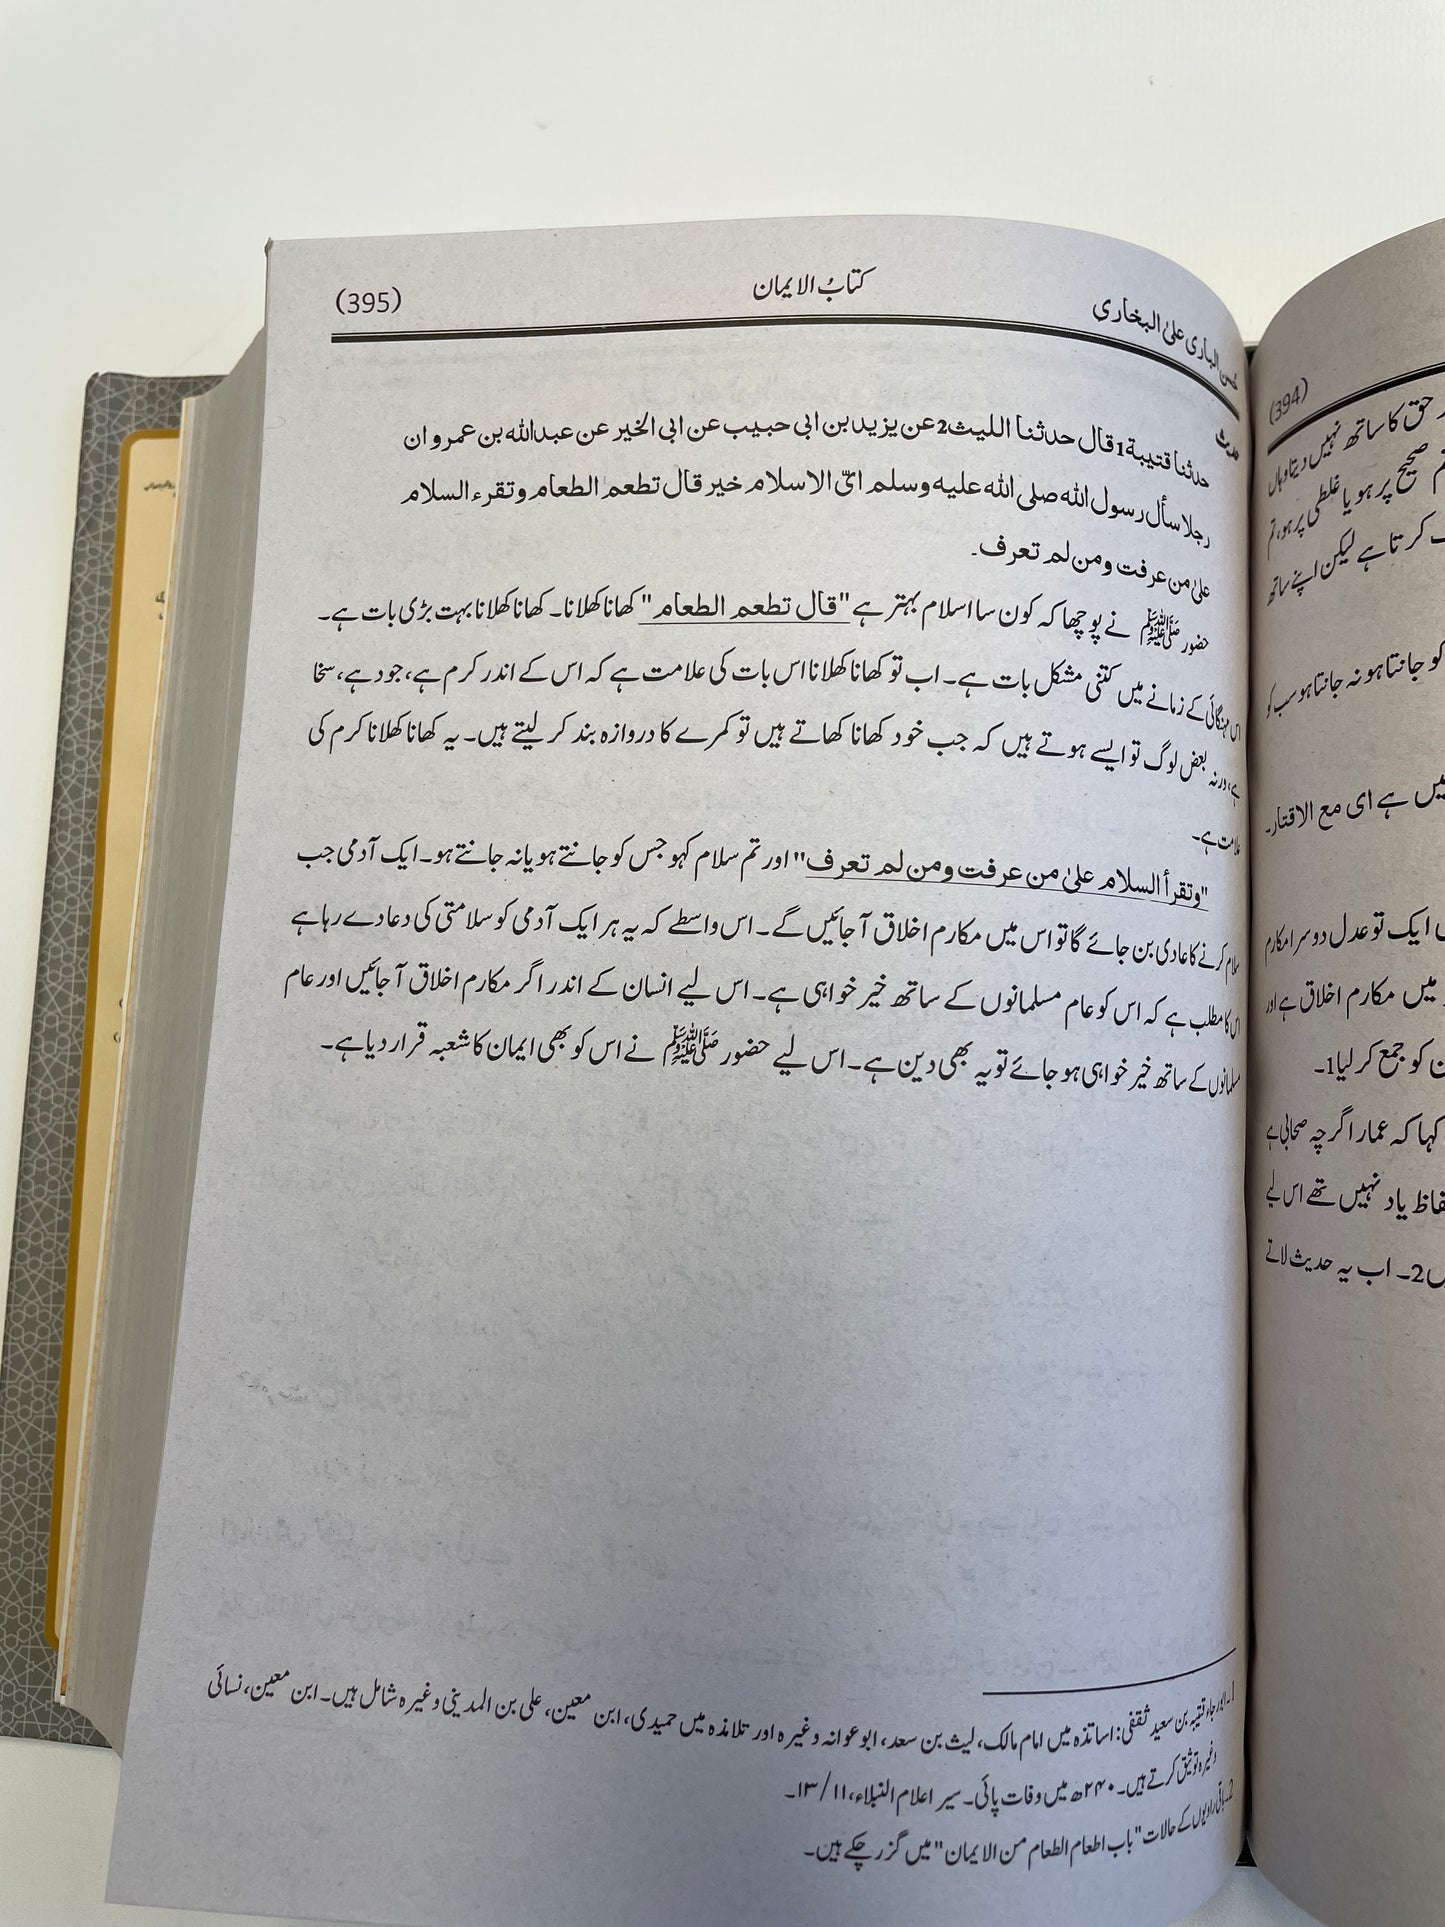 الباری علیٰ البخاری
کتابُ الایمان
(395)
حدیث
حدثنا قتیبة1 قال حدثنا اللیث2 عن یزید بن ابی حبیب عن ابی الخیر عن عبدالله بن عمرو ان
رجلا سأل رسول الله صلی الله علیه وسلم ایّ الاسلام خیر قال تطعم الطعام وتقرء السلام
علیٰ من عرفت ومن لم تعرف۔
حضور ﷺ نے پوچھا کہ کون سا اسلام بہتر ہے "قال تطعم الطعام" کھانا کھلانا۔ کھانا کھلانا بہت بڑی بات ہے۔
اس مہنگائی کے زمانے میں کتنی مشکل بات ہے۔ اب تو کھانا کھلانا اس بات کی علامت ہے کہ اس کے اندر کرم ہے، جود ہے، سخا
ہے، ورنہ بعض لوگ تو ایسے ہوتے ہیں کہ جب خود کھانا کھاتے ہیں تو کمرے کا دروازہ بند کر لیتے ہیں۔ یہ کھانا کھلانا کرم کی
علامت ہے۔
"وتقرأ السلام علیٰ من عرفت ومن لم تعرف" اور تم سلام کہو جس کو جانتے ہو یا نہ جانتے ہو۔ ایک آدمی جب
سلام کرنے کا عادی بن جائے گا تو اس میں مکارم اخلاق آ جائیں گے۔ اس واسطے کہ یہ ہر ایک آدمی کو سلامتی کی دعا دے رہا ہے
اس کا مطلب ہے کہ اس کو عام مسلمانوں کے ساتھ خیر خواہی ہے۔ اس لیے انسان کے اندر اگر مکارم اخلاق آ جائیں اور عام
مسلمانوں کے ساتھ خیر خواہی ہو جائے تو یہ بھی دین ہے۔ اس لیے حضور ﷺ نے اس کو بھی ایمان کا شعبہ قرار دیا ہے۔
1۔ ابو رجاء قتیبہ بن سعید ثقفی: اساتذہ میں امام مالک، لیث بن سعد، ابو عوانہ وغیرہ اور تلامذہ میں حمیدی، ابن معین، علی بن المدینی وغیرہ شامل ہیں۔ ابن معین، نسائی
وغیرہ توثیق کرتے ہیں۔ ۲۴۰ھ میں وفات پائی۔ سیر اعلام النبلاء، ۱۱/۱۳۔
2۔ باقی راویوں کے حالات "باب اطعام الطعام من الایمان" میں گزر چکے ہیں۔
(394)
حق کا ساتھ نہیں دیتا وہاں
صحیح پر ہو یا غلطی پر ہو، تم
کرتا ہے لیکن اپنے ساتھ
کو جانتا ہو نہ جانتا ہو سب کو
ہے ای مع الاقتار۔
ایک تو عدل دوسرا مکارم
میں مکارم اخلاق ہے اور
کو جمع کر لیا1۔
کہا کہ عمار اگرچہ صحابی ہے
یاد نہیں تھے اس لیے
2۔ اب یہ حدیث لاتے